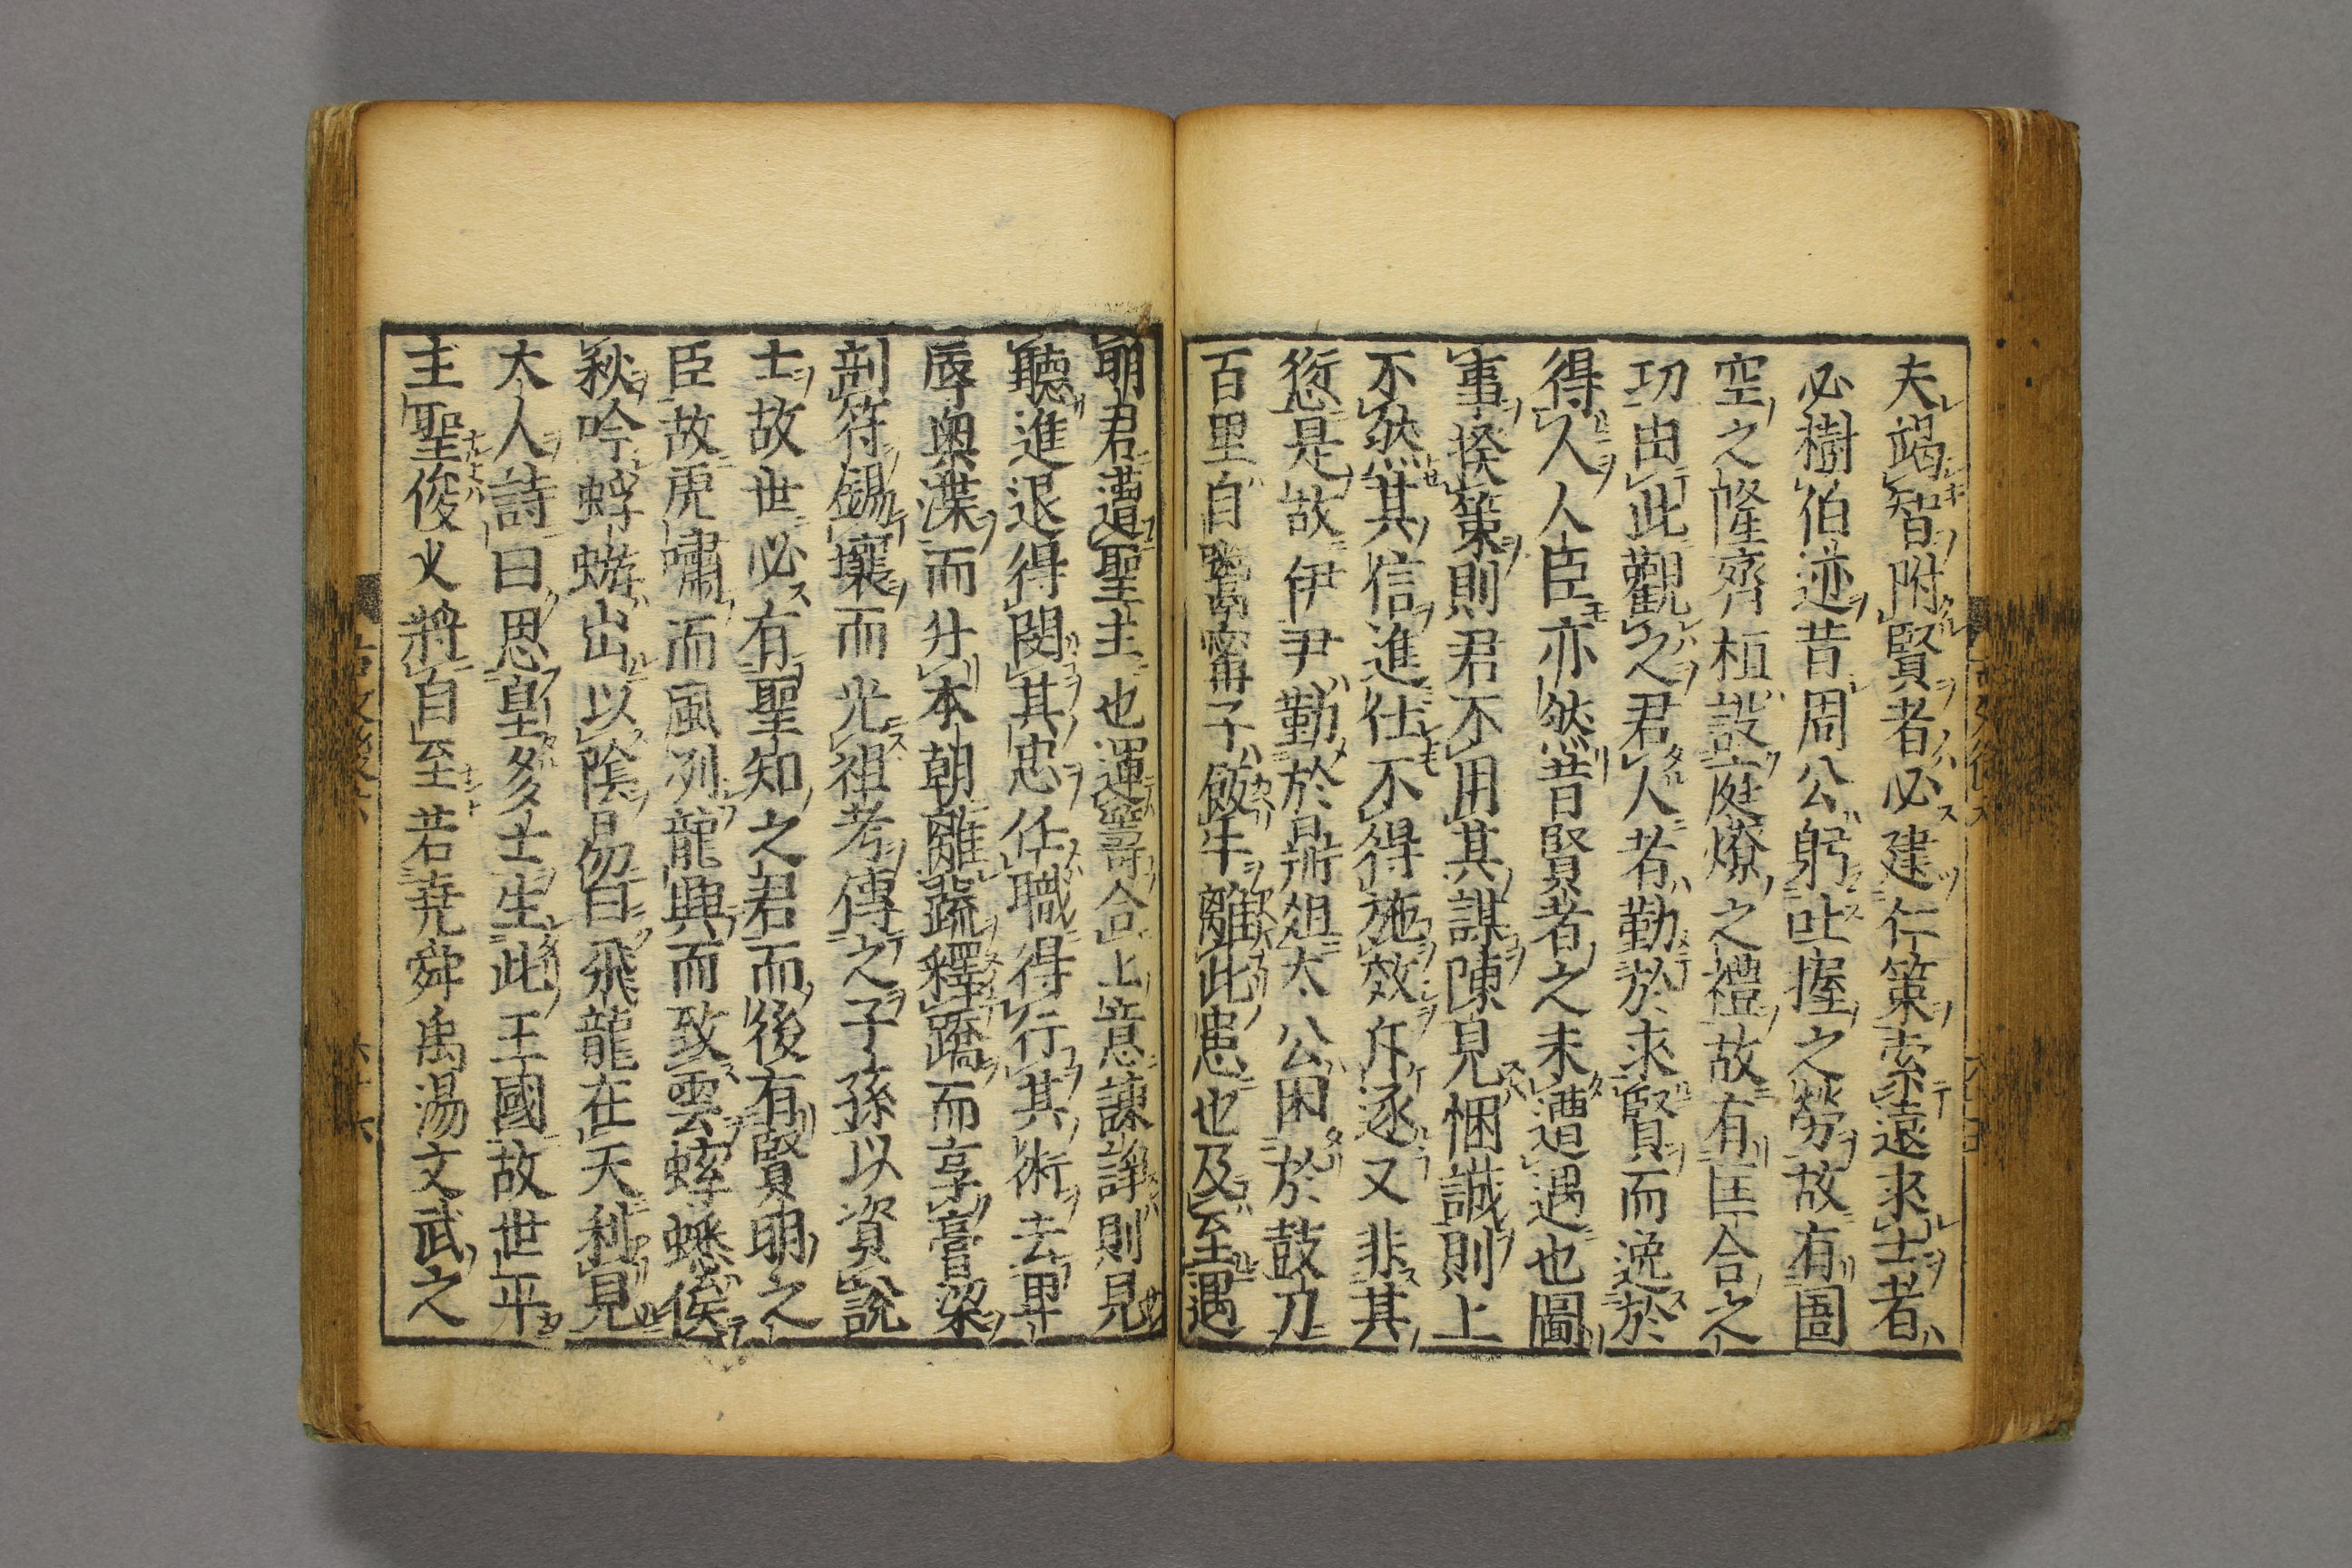 夫竭智附賢者必建仁策索遠求士者
必樹伯迹昔周公躬吐握之勞故有圄
空之隆齊桓設庭燎之禮故有匡合之
功由此觀之君人者勤於求賢而逸於
得人人臣亦然昔賢者之未遭遇也圖
事揆策則君不用其謀陳見悃誠則上
不然其信進仕不得施效斥逐又非其
愆是故伊尹勤於鼎俎太公困於鼓刀
百里自鬻甯子飯牛離此患也及至遇
明君遭聖主也運籌合上意諫諍則見
聽進退得関其忠任職得行其術去卑
辱奧渫而升本朝離蔬釋蹻而享膏粱
剖符錫壤而光祖考傳之子孫以資說
士故世必有聖知之君而後有賢明之
臣故虎嘯而風冽龍興而致雲蟋蟀俟
秋唫蜉蝣出以陰易曰飛龍在天利見
大人詩曰思皇多士生此王國故世平
主聖俊乂將自至若堯舜禹湯文武之